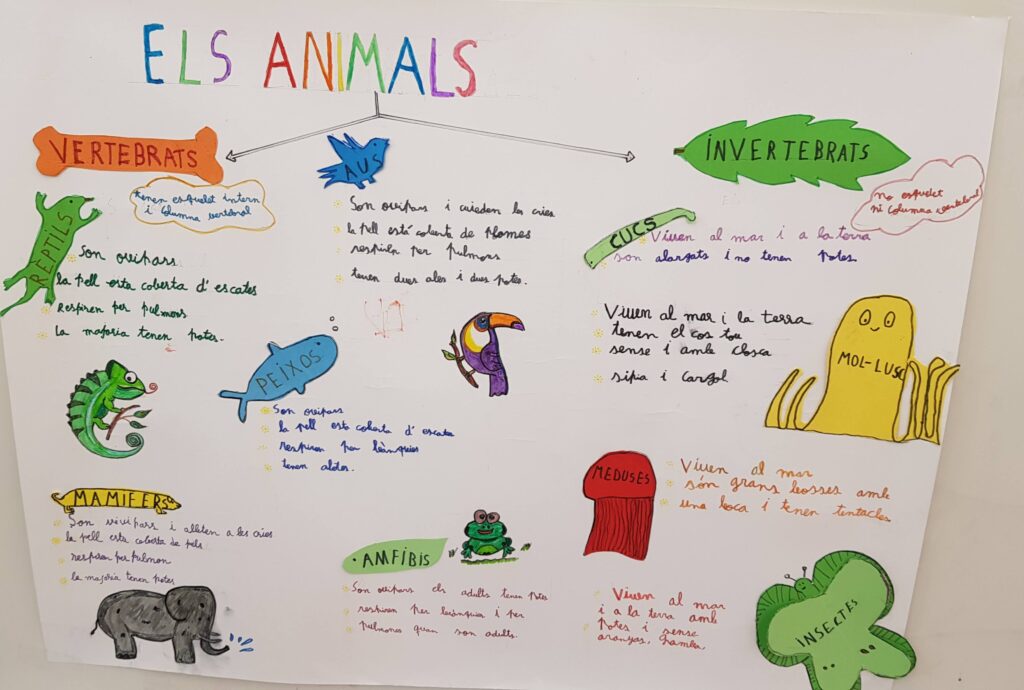 ELS ANIMALS
VERTEBRATS
tenen esquelet intern
i columna vertebral
RÈPTILS
Son ovipars
la pell esta coberta d' escates
Respiren per pulmons
la majoria tenen potes.
AUS
Son ovipars i cuiden les cries
la pell està coberta de plomes
respiren per pulmons
tenen dues ales i dues potes.
PEIXOS
Son ovipars
la pell esta coberta d' escates
respiren per brànquies
tenen aletes.
MAMIFERS
Son vivipars i alleten a les cries
la pell esta coberta de pels
respiren per pulmon
la majoria tenen potes
AMFÍBIS
Son ovipars els adults tenen potes
respiren per brànquies i per
pulmones quan son adults.
INVERTEBRATS
no esquelet
ni columna vertebral
CUCS
Viuen al mar i a la terra
son alargats i no tenen potes
Viuen al mar i la terra
tenen el cos tou
sense i amb closca
sipia i cargol
MOL-LUSC
MEDUSES
Viuen al mar
són grans bosses amb
una boca i tenen tentacles
Viuen al mar
i a la terra amb
potes i sense
aranyas, gamba
INSECTES